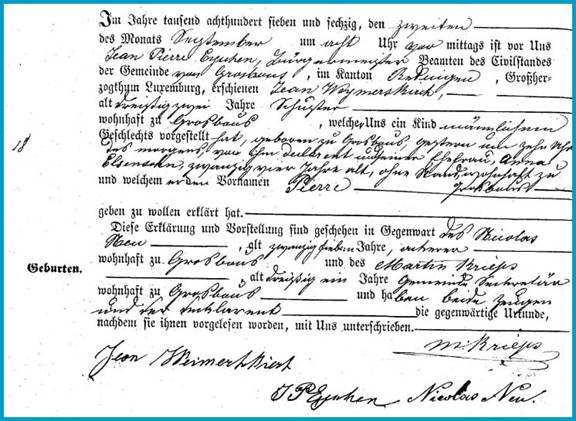 Im Jahre tausend achthundert sieben und sechzig, den zweiten
des Monats September um acht Uhr vor mittags ist vor Uns
Jean Pierre Eyschen, Bürgermeister Beamten des Civilstandes
der Gemeinde von Grosbous, im Kanton Redingen, Großher-
zogthum Luxemburg, erschienen Jean Wymerskirch,
alt dreißig zwei Jahre Schuster
wohnhaft zu Grosbous, welche, Uns ein Kind männlichem
18
Geschlechts vorgestellt hat, geboren zu Grosbous, gestern um zehn Uhr
des morgens, von ihm declarant und seiner Ehefrau, Anna
Elsensohn, zwanzig vier Jahre alt, ohne Stand, wohnhaft zu
und welchem er den Vornamen Pierre Grosbous
geben zu wollen erklärt hat.
Diese Erklärung und Vorstellung sind geschehen in Gegenwart des Nicolas
Neu, alt zwanzig sieben Jahre,
Geburten.
wohnhaft zu Grosbous und des Martin Krieps
alt dreißig ein Jahre Gemeinde Secretär
wohnhaft zu Grosbous und haben beide Zeugen
und der declarent die gegenwärtige Urkunde,
nachdem sie ihnen vorgelesen worden, mit Uns unterschrieben.
M. Krieps
Jean Weimerskirch
J P Eyschen Nicolas Neu.